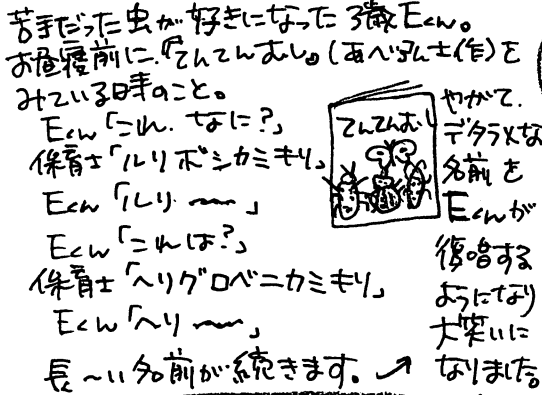 苦手だった虫が好きになった3歳Eくん。
お昼寝前に、「てんてんむし。(あべ弘士作)を
みている時のこと。
Eくん「これ、なに?」
保育士「ルリボシカミキリ」
Eくん「ルリ〜〜」
Eくん「これは?」
保育士「ヘリグロベニカミキリ」
Eくん「ヘリ〜〜」
長〜い名前が続きます。↗
てんてんむし
やがて、
デタラメな
名前を
Eくんが
復唱する
ようになり
大笑いに
なりました。